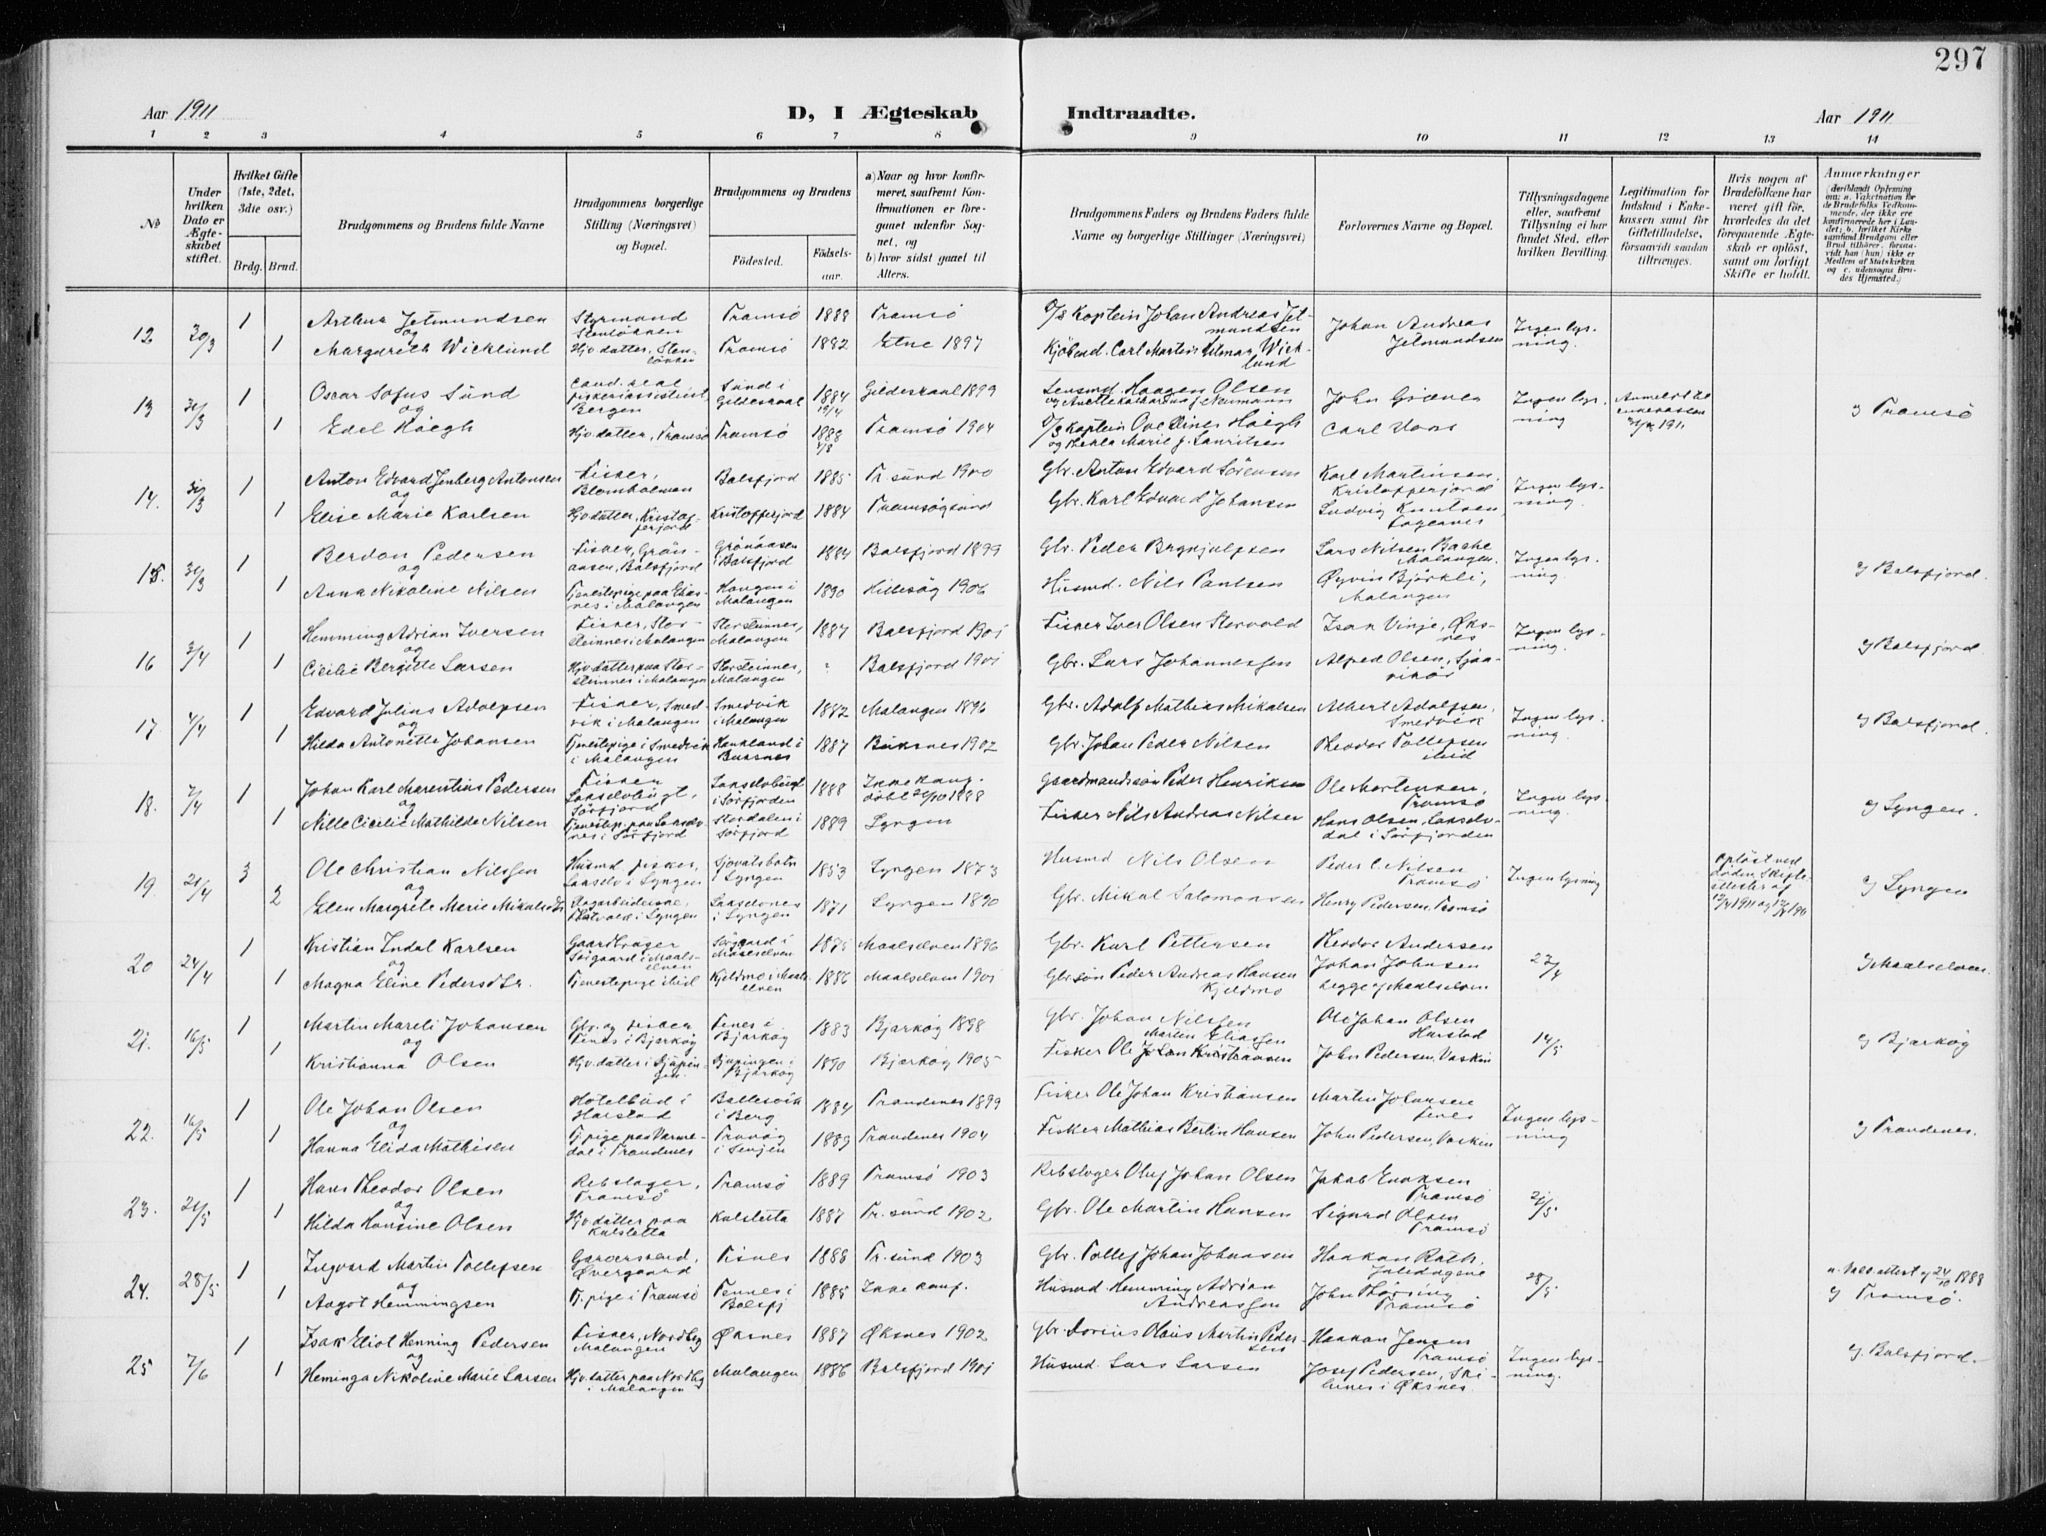 297
Aar 1911 D, I Ægteskab Indtraadte. Aar 1911
1 2 3 4 5 6 7 8 9 10 11 12 13 14
No
Under hvilken Dato er Ægteskabet stiftet.
Hvilket Gifte (1ste, 2det, 3die osv.)
Brdg. Brud.
Brudgommens og Brudens fulde Navne
Brudgommens borgerlige Stilling (Næringsvei) og Bopæl.
Brudgommens og Brudens
Fødested.
Fødselsaar.
a) Naar og hvor konfirmeret, saafremt Konfirmationen er foregaaet udenfor Sognet, og
b) hvor sidst gaaet til Alters.
Brudgommens Faders og Brudens Faders fulde Navne og borgerlige Stillinger (Næringsvei)
Forlovernes Navne og Bopæl.
Tillysningsdagene eller, saafremt Tillysning ei har fundet Sted, efter hvilken Bevilling.
Legitimation for Indskud i Enkekassen samt for Giftetilladelse, forsaavidt saadan tiltrænges.
Hvis nogen af Brudefolkene har været gift før, hvorledes da det foregaaende Ægteskab er opløst, samt om lovligt Skifte er holdt.
Anmærkninger
(deriblandt Oplysning om: a. Vakcination for de Brudefolks Vedkommende, der ikke ere konfirmerede her i Landet; b. hvilket Kirkesamfund Brudgom eller Brud tilhører, forsaavidt han (hun) ikke er Medlem af Statskirken og c. udensogns Brudes Hjemsted.)
12 30/3 1 Arthur Jetmundsen Styrmand Tromsö 1888 Tromsö Kaptein Johan Andreas Jetmundsen Johan Andreas Jetmundsen Ingen lysning.
og
1 Margareth Wicklund Hjv. datter, Tromsö 1892 1897 Kjöbmd. Carl Martin Wicklund
13 31/3 1 Oscar Sofus Sund Cand. real fiskeriassistent, Bergen Sund i Gildeskaal 1884 Gildeskaal 1899 Lensmd. Haagen Olsen John Ingen lysning 1911 c) Tromsö
og
1 Edel Höegh Hjv. datter, Tromsö Tromsö 1888 Tromsö 1904 Kaptein Ove Höegh og Marie f. Lauritsen Carl
14. 31/3 1 Anton Edvard Jenberg Antonsen Fisker, Balsfjord 1885 Tr.sund 1900 Gbr. Anton Edvard Sörensen Karl Martinsen, Kristofferjord Ingen lysning.
og
1 Elise Marie Karlsen Hjv. datter, Kristofferjord Kristofferjord 1884 Tromsösund Gbr. Karl Edvard Johansen Ludvig Knutsen,
15. 31/3 1 Berdon Pedersen Fisker, Grönaasen, Balsfjord Grönaasen i Balsfjord 1884 Balsfjord 1899 Gbr. Peder Brynjulfsen Lars Nilsen Malangen. Ingen lysning. c) Balsfjord.
og
1 Anna Nikoline Nilsen Tjenestepige paa i Malangen i Malangen 1890 Hillesöy 1906 Husmd. Nils Paulsen Øyvin Björkli, Malangen
16 3/4 1 Hemming Adrian Iversen Fisker, Storsteinnes i Malangen Storsteinnes, Malangen 1887 Balsfjord 1901 Fisker Iver Olsen Storvold Isak Vinje, Øksnes Ingen lysning. c) Balsfjord
og
1 Cicilie Bergitte Larsen Hjv. datter paa Storsteinnes i Malangen Storsteinnes, Malangen Balsfjord 1901 Gbr. Lars Johannessen Alfred Olsen,
17 4/4 1 Edvard Julius Adolfsen Fisker, Smedvik i Malangen Smedvik i Malangen 1882 Malangen 1896 Gbr. Adolf Mathias Mikalsen Albert Adolfsen, Smedvik Ingen lysning. c) Balsfjord.
og
1 Hilda Antonette Johansen Tjenestepige i Smedvik i Malangen Haukland i Buksnes 1887 Buksnes 1902 Gbr. Johan Peder Nilsen Theodor Tollefsen
18. 7/4 1 Johan Karl Marentius Pedersen Fisker Sörfjord i Sörfjorden 1888 Ikke konf. döbt 1888 Gaardmandssön Peder Henriksen Ole Mortensen, Tromsö Ingen lysning. c) Syngen.
og
1 Nille Cicilie Mathilde Nilsen Tjenestep. paa i Sörfjord Stordalen i Sörfjord 1889 Lyngen Fisker Nils Andreas Nilsen Hans Olsen, i Sörfjorden
19. 21/4 3 Ole Christian Nilssen Husmd. fisker, i Lyngen i Lyngen 1853 Lyngen 1873 Husmd Nils Olsen Peder C. Nilsen Tromsö Ingen lysning oplöst ved döden. Skifte 1911 c) Lyngen
og
2 Elen Margrete Marie Mikals Dagarbeiderske, i Lyngen i Lyngen 1871 Lyngen 1890 Gbr. Mikal Salomonsen Henry Pedersen, Tromsö
20 24/4 1 Kristian Indal Karlsen Gaardbruger Sörgaard i Maalselven Sörgaard i Maalselven 1875 Maalselven 1896 Gbr. Karl Pettersen Theodor Andersen 23/4 c) Maalselven.
og
1 Magna Eline Pedersdtr. Tjenestepige Kjeldmo i Maalselven 1886 Maalselven 1901 Gbr.sön Peder Andreas Hansen Kjeldmo Johan Johnsen begge af Maalselven
21. 16/5 1 Martin Mareli Johansen Gbr. og fisker, Fenes i Bjarköy Fenes i Bjarköy 1883 Bjarköy 1898 Gbr. Johan Nilssen Ole Johan Olsen Harstad 14/5 c) Bjarköy
og
1 Kristianna Olsen Hjv. datter i i Bjarköy 1890 Bjarköy 1905 Fisker Ole Martin Eliassen John Pedersen, Vaskin
22. 16/5 1 Ole Johan Olsen Hotelbud i Harstad Ballesvik i Berg 1884 Trondenes 1899 Fisker Ole Johan Kristiansen Martin Johansen Fenes Ingen lysning c) Trondenes.
og
1 Hanna Elida Mathisen Tj. pige paa i Trondenes Tranöy i Senjen 1883 Trondenes 1904 Fisker Mathias Bertin Hansen John Pedersen, Vaskin
23. 21/5 1 Hans Theodor Olsen Rebslager, Tromsö Tromsö 1889 Tromsö 1903 Rebslager Oluf Johan Olsen Jakob Enoksen Tromsö 21/5
og
1 Hilda Hansine Olsen Hjv. datter paa Kalsletta Kalsletta 1887 Tr.sund 1902 Gbr. Ole Martin Hansen Sigurd Olsen Tromsö
24. 28/5 1 Ingvard Martin Tollefsen Øvergaard Tisnes 1888 Tr.sund 1903 Gbr. Tollef Johan Johnasen Haakan Rath, 28/5 a. Vakc.attest af 24/10 1888
og
1 Aagot Hemmingsen Tj. pige i Tromsö Tennes i Balsfj 1885 Ikke konf. Husmd. Hemming Adrian Andreassen John Tromsö c) Tromsö.
25 7/6 1 Isak Eliot Henning Pedersen Fisker, Nordby Malangen Øksnes 1887 Øksnes 1902 Gbr. Olaus Martin Pedersen Haakon Jensen Tromsö Ingen lysning. c) Balsfjord.
og
1 Heminga Nikoline Marie Larsen Hjv. datter paa Nordby i Malangen Malangen 1886 Balsfjord 1901 Husmd. Lars Larsen Josef Pedersen, i Øksnes.